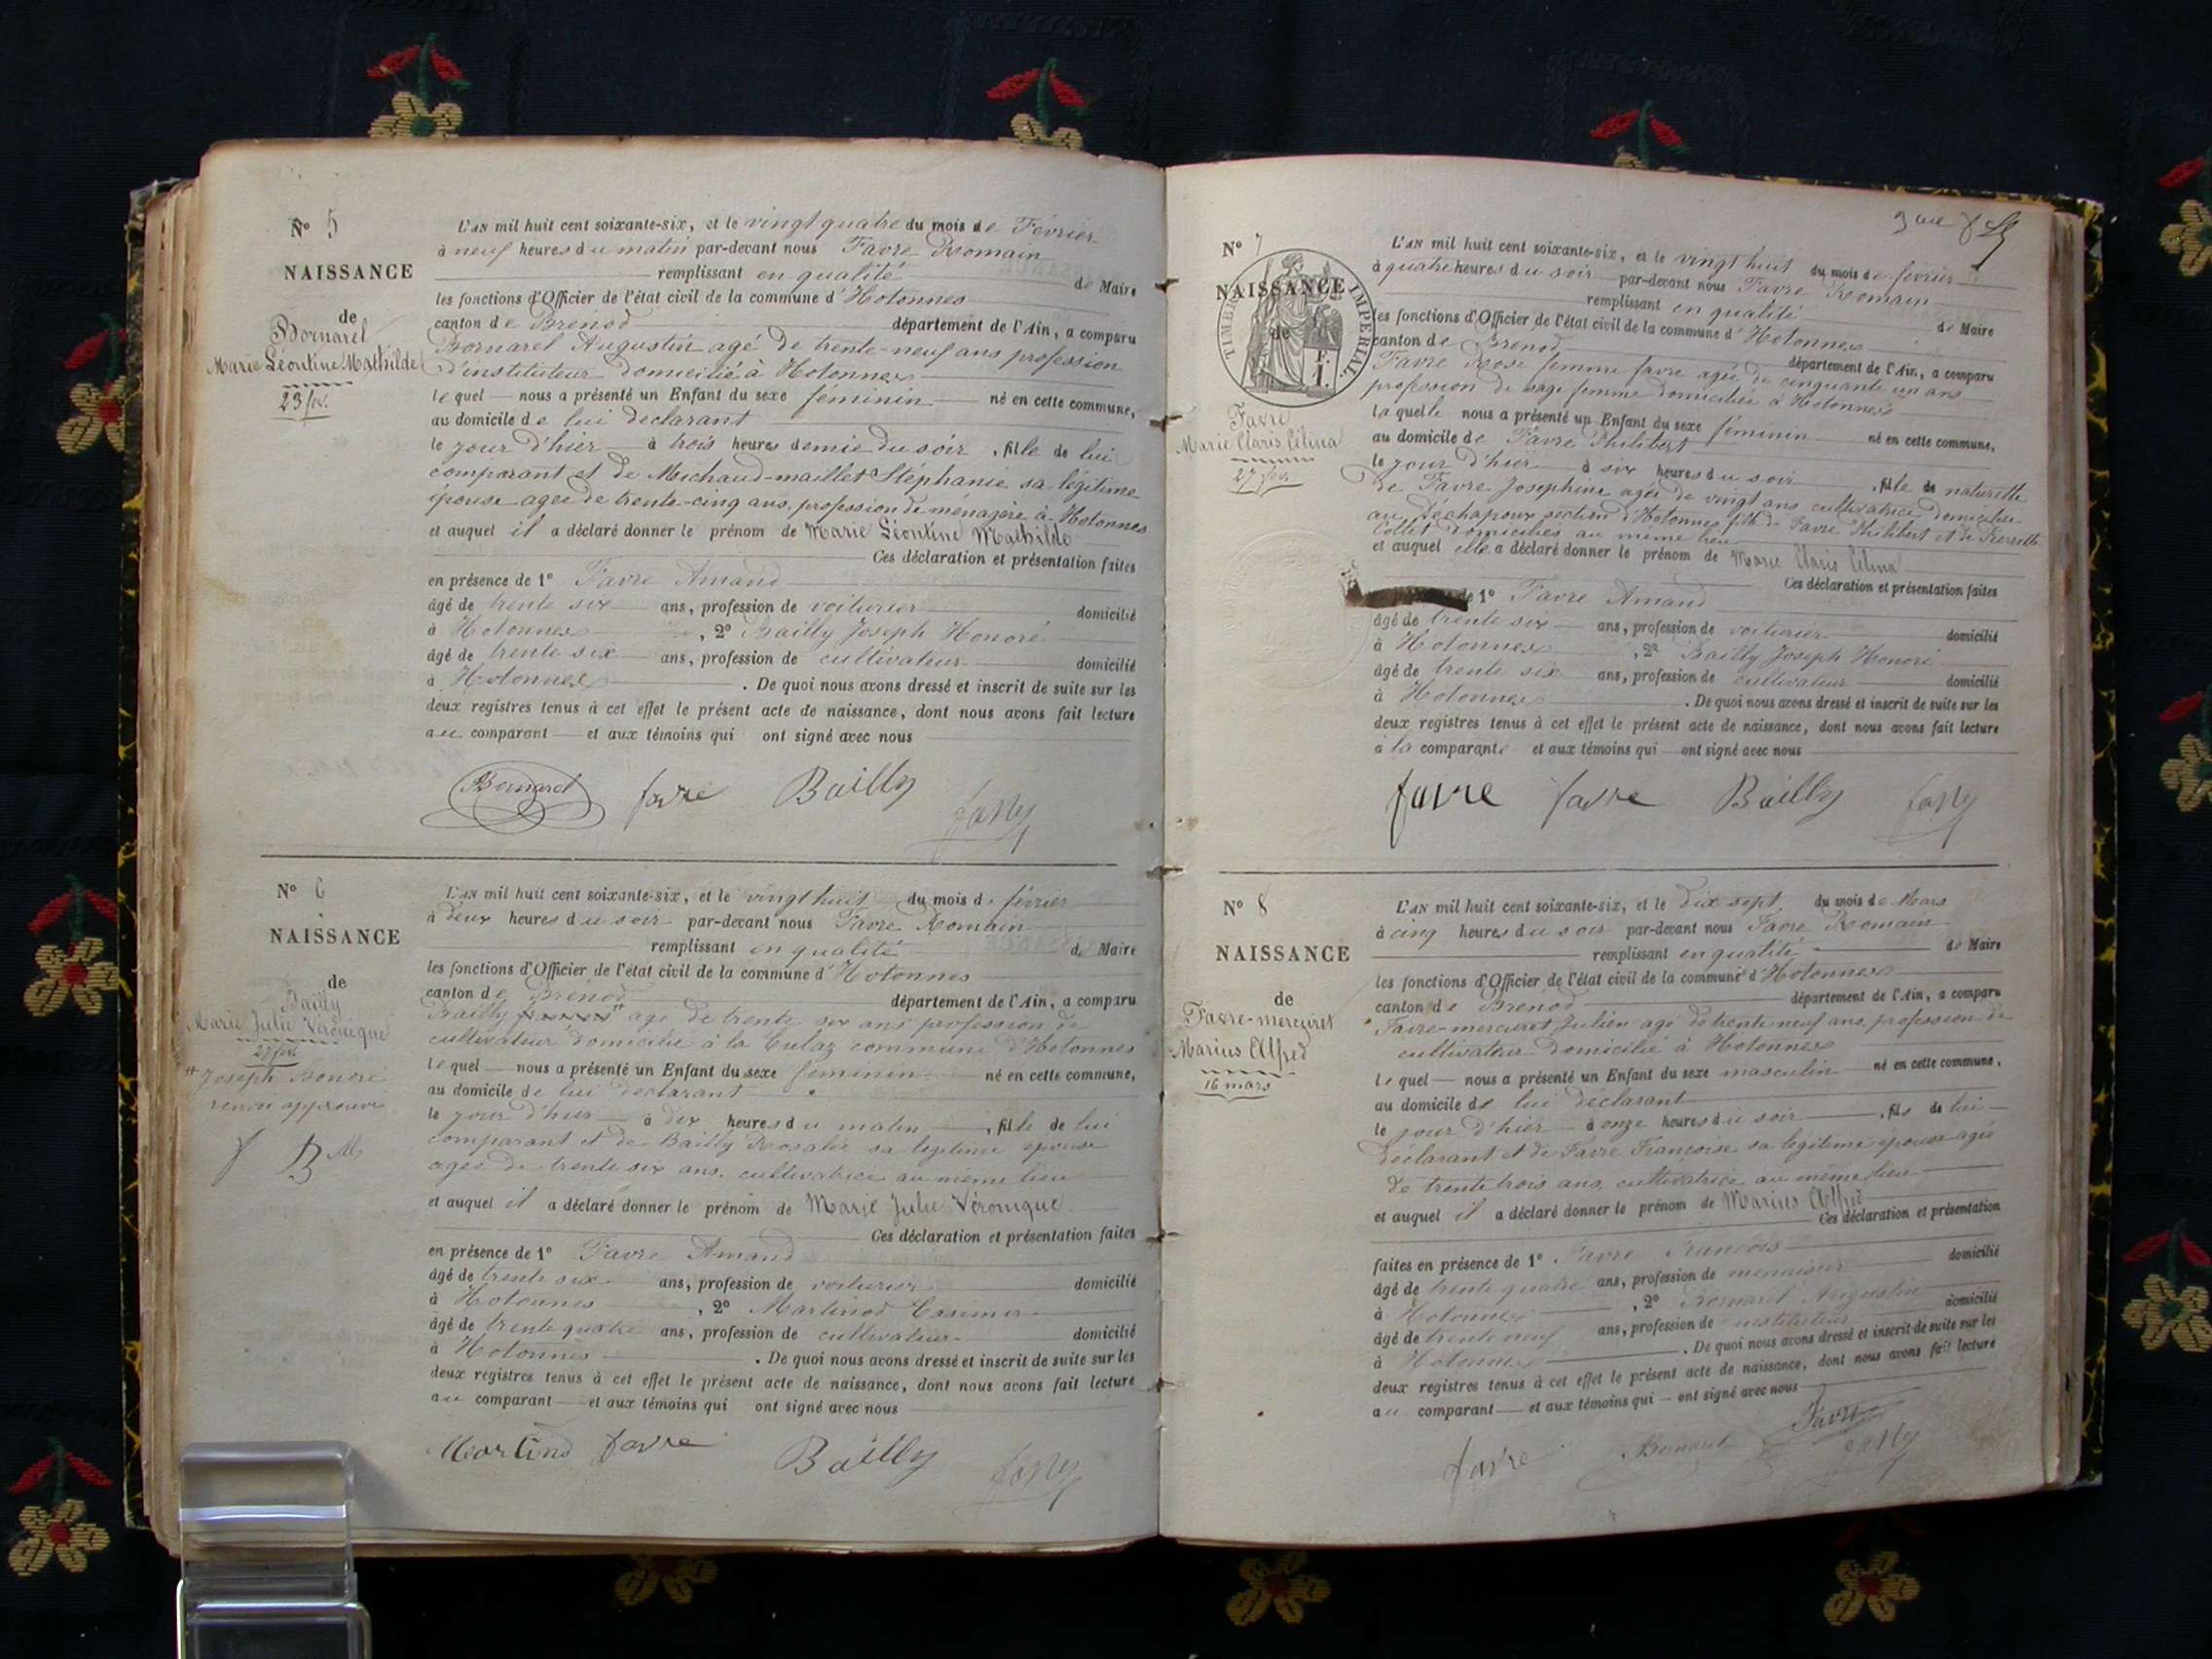 N° 5
NAISSANCE
de
Bornarel
Marie Léontine Mathilde
23 fév.
L'AN mil huit cent soixante-six, et le vingt quatre du mois de Février
à neuf heures du matin par-devant nous Favre Romain
remplissant en qualité de Maire
les fonctions d'Officier de l'état civil de la commune d'Hotonnes
canton de Brénod département de l'Ain, a comparu
Bornarel Augustin agé de trente-neuf ans profession
d'instituteur domicilié à Hotonnes
lequel nous a présenté un Enfant du sexe féminin né en cette commune,
au domicile de lui declarant
le jour d'hier à trois heures demie du soir, fille de lui
comparant et de Michaud-maillet Stéphanie sa légitime
épouse agée de trente-cinq ans, profession de ménagère à Hotonnes
et auquel il a déclaré donner le prénom de Marie Léontine Mathilde
Ces déclaration et présentation faites
en présence de 1° Favre Amand
âgé de trente six ans, profession de voiturier domicilié
à Hotonnes, 2° Bailly Joseph Honoré
âgé de trente six ans, profession de cultivateur domicilié
à Hotonnes. De quoi nous avons dressé et inscrit de suite sur les
deux registres tenus à cet effet le présent acte de naissance, dont nous avons fait lecture
au comparant et aux témoins qui ont signé avec nous
Bornarel favre Bailly
N° 6
NAISSANCE
de
Bailly
Marie Julie Véronique
27 fév.
Joseph Honoré
renvoi approuvé
L'AN mil huit cent soixante-six, et le vingt huit du mois de février
à deux heures du soir par-devant nous Favre Romain
remplissant en qualité de Maire
les fonctions d'Officier de l'état civil de la commune d'Hotonnes
canton de Brénod département de l'Ain, a comparu
Bailly agé de trente six ans profession de
cultivateur domicilié à la commune d'Hotonnes
lequel nous a présenté un Enfant du sexe féminin né en cette commune,
au domicile de lui declarant
le jour d'hier à dix heures du matin, fille de lui
comparant et de Bailly Rosalie sa légitime épouse
agée de trente six ans, cultivatrice au même lieu
et auquel il a déclaré donner le prénom de Marie Julie Véronique
Ces déclaration et présentation faites
en présence de 1° Favre Amand
âgé de trente six ans, profession de voiturier domicilié
à Hotonnes, 2° Martinod Casimir
âgé de trente quatre ans, profession de cultivateur domicilié
à Hotonnes. De quoi nous avons dressé et inscrit de suite sur les
deux registres tenus à cet effet le présent acte de naissance, dont nous avons fait lecture
au comparant et aux témoins qui ont signé avec nous
Martinod favre Bailly
N° 7
NAISSANCE
de
TIMBRE IMPERIAL
Favre
Marie Claris Célina
27 fév.
L'AN mil huit cent soixante-six, et le vingt huit du mois de février
à quatre heures du soir par-devant nous Favre Romain
remplissant en qualité de Maire
les fonctions d'Officier de l'état civil de la commune d'Hotonnes
canton de Brenod département de l'Ain, a comparu
Favre Rose femme favre agée de cinquante un ans
profession de sage femme domiciliée à Hotonnes
laquelle nous a présenté un Enfant du sexe féminin né en cette commune,
au domicile de Favre Philibert
le jour d'hier à six heures du soir, fille de naturelle
de Favre Josephine agée de vingt ans cultivatrice domiciliée
au section d'Hotonnes fille de Favre Philibert et de Pierrette
Collet domiciliés au même lieu
et auquel elle a déclaré donner le prénom de Marie Claris Célina
Ces déclaration et présentation faites
de 1° Favre Amand
âgé de trente six ans, profession de voiturier domicilié
à Hotonnes, 2° Bailly Joseph Honoré
âgé de trente six ans, profession de cultivateur domicilié
à Hotonnes. De quoi nous avons dressé et inscrit de suite sur les
deux registres tenus à cet effet le présent acte de naissance, dont nous avons fait lecture
a la comparante et aux témoins qui ont signé avec nous
favre favre Bailly
N° 8
NAISSANCE
de
Favre-mercuret
Marius Alfred
16 mars
L'AN mil huit cent soixante-six, et le dix sept du mois de Mars
à cinq heures du soir par-devant nous Favre Romain
remplissant en qualité de Maire
les fonctions d'Officier de l'état civil de la commune d'Hotonnes
canton de Brenod département de l'Ain, a comparu
Favre-mercuret Julien agé de trente neuf ans, profession de
cultivateur domicilié à Hotonnes
lequel nous a présenté un Enfant du sexe masculin né en cette commune,
au domicile de lui déclarant
le jour d'hier à onze heures du soir, fils de lui
déclarant et de Favre Françoise sa légitime épouse agée
de trente trois ans, cultivatrice au même lieu
et auquel il a déclaré donner le prénom de Marius Alfred
Ces déclaration et présentation
faites en présence de 1° Favre François
âgé de trente quatre ans, profession de menuisier domicilié
à Hotonnes, 2° Bornarel Augustin
âgé de trente neuf ans, profession de instituteur domicilié
à Hotonnes. De quoi nous avons dressé et inscrit de suite sur les
deux registres tenus à cet effet le présent acte de naissance, dont nous avons fait lecture
au comparant et aux témoins qui ont signé avec nous
favre Bornarel Favre